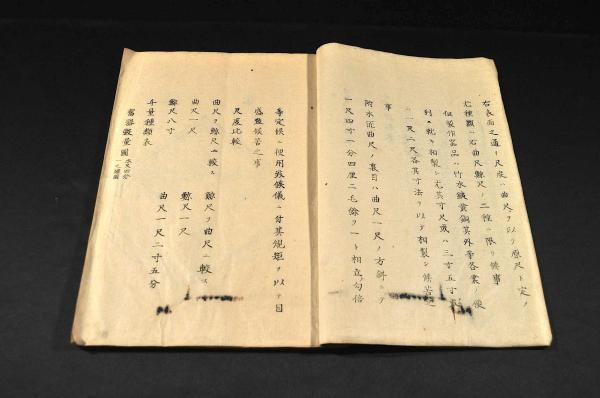 右表面之通リ尺度ハ曲尺ヲ以テ原尺ト定ノ
尤種類ハ右曲尺鯨尺ノ二種ニ限リ候事
但製作器品ハ竹木鉄黄銅其外等各業ノ便
利ニ就キ相製シ尤其寸尺或ハ三寸五寸
一尺二尺各其寸法ヲ以テ相製シ候
事
附木匠曲尺ノ裏目ハ曲尺一尺ノ方斜ニテ
一尺四寸一分四厘二毛餘ヲ一ト相立勾倍
等定候ニ便用致候儀ニ付其規矩ヲ以テ目
盛致候
尺度比較
曲尺ヲ鯨尺ニ較ス 鯨尺ヲ曲尺ニ較ス
曲尺一尺 鯨尺一尺
鯨尺八寸 曲尺一尺二寸五分
斗量種類表
舊器穀量圖